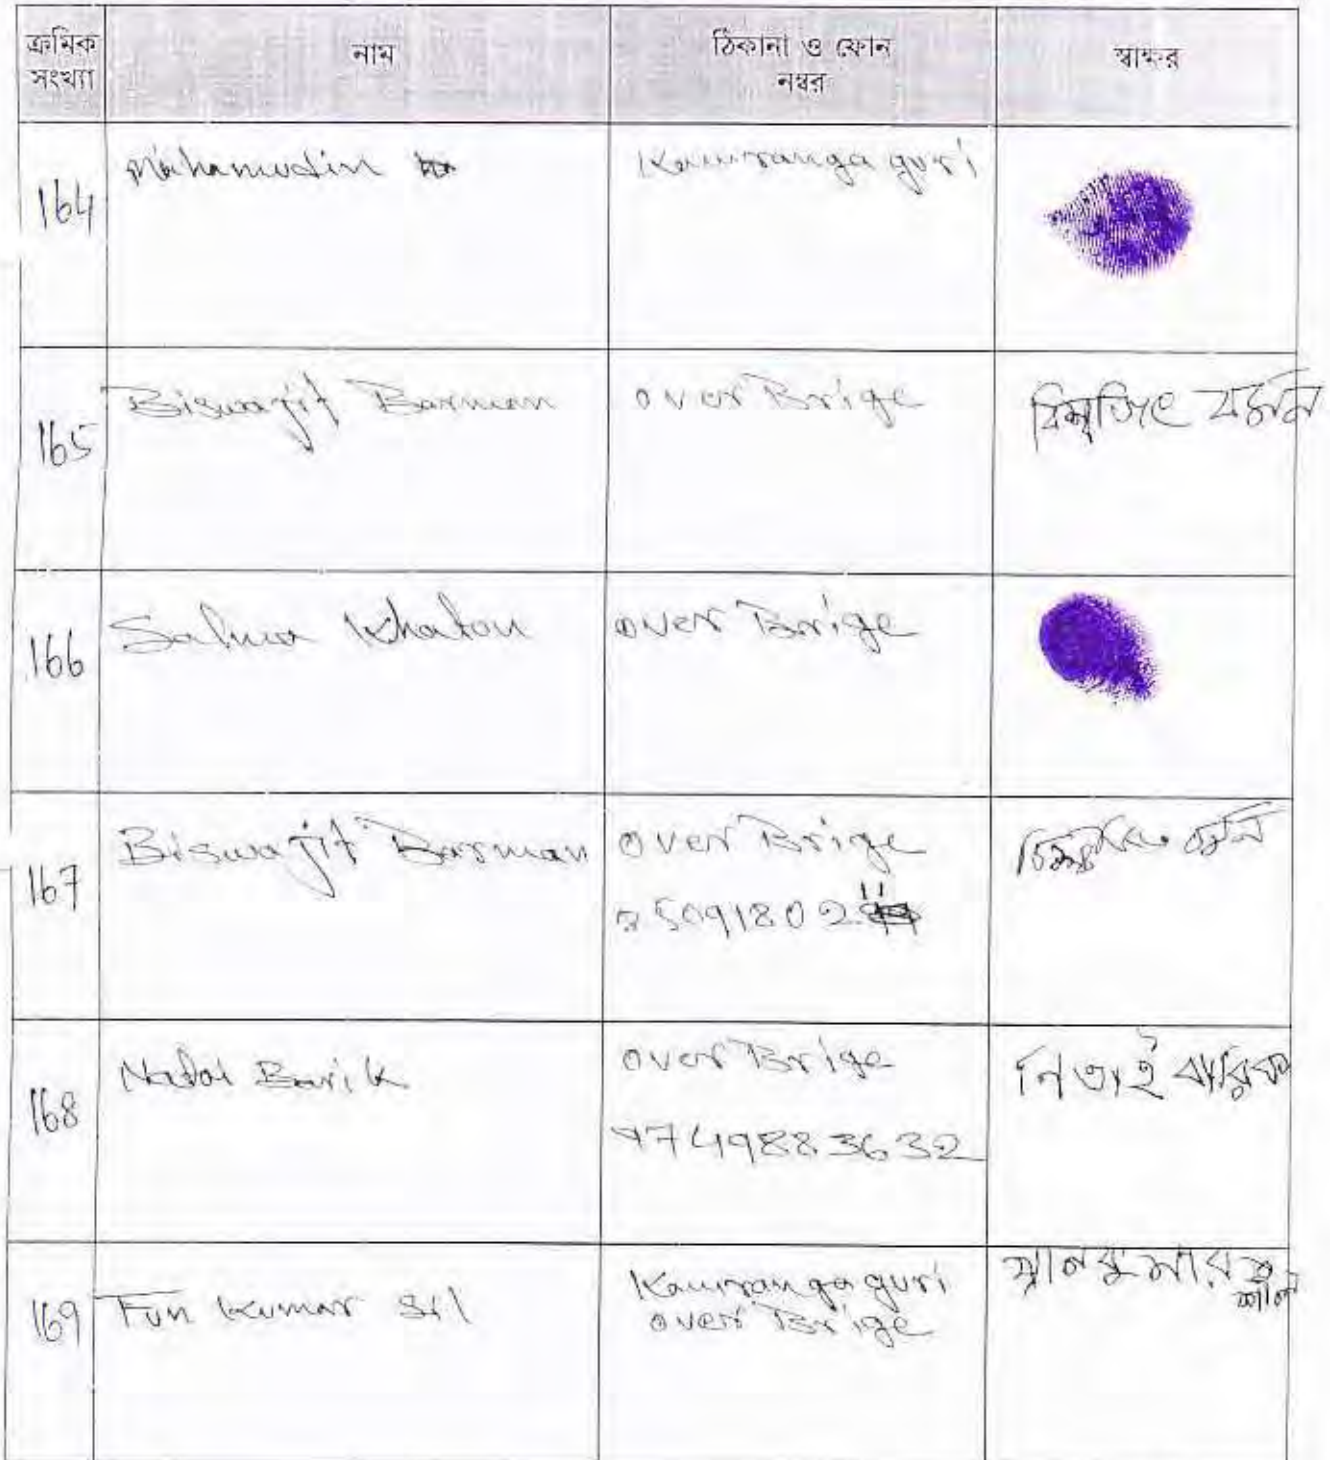 ক্রমিক সংখ্যা নাম ঠিকানা ও ফোন নম্বর স্বাক্ষর
164 Mahamudin Kamrangaguri
165 Biswajit Barman over Brige বিশ্বজিৎ বর্মন
166 Salma Khatun over Brige
167 Biswajit Barman over Brige
বর্মন
168 Barik over Brige নিতাই বারিক
9749883632
169 Kumar Sil Kamrangaguri
over Brige
কুমার
শীল